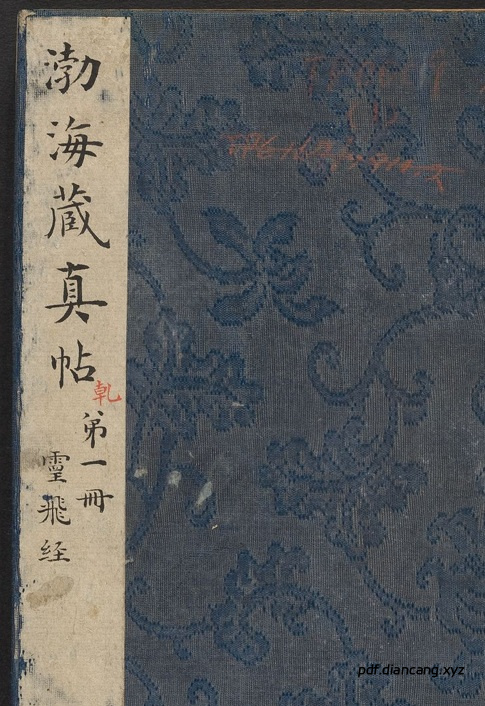 渤海蔵真帖
乾
第一冊
霊飛経
pdf.diancang.xyz